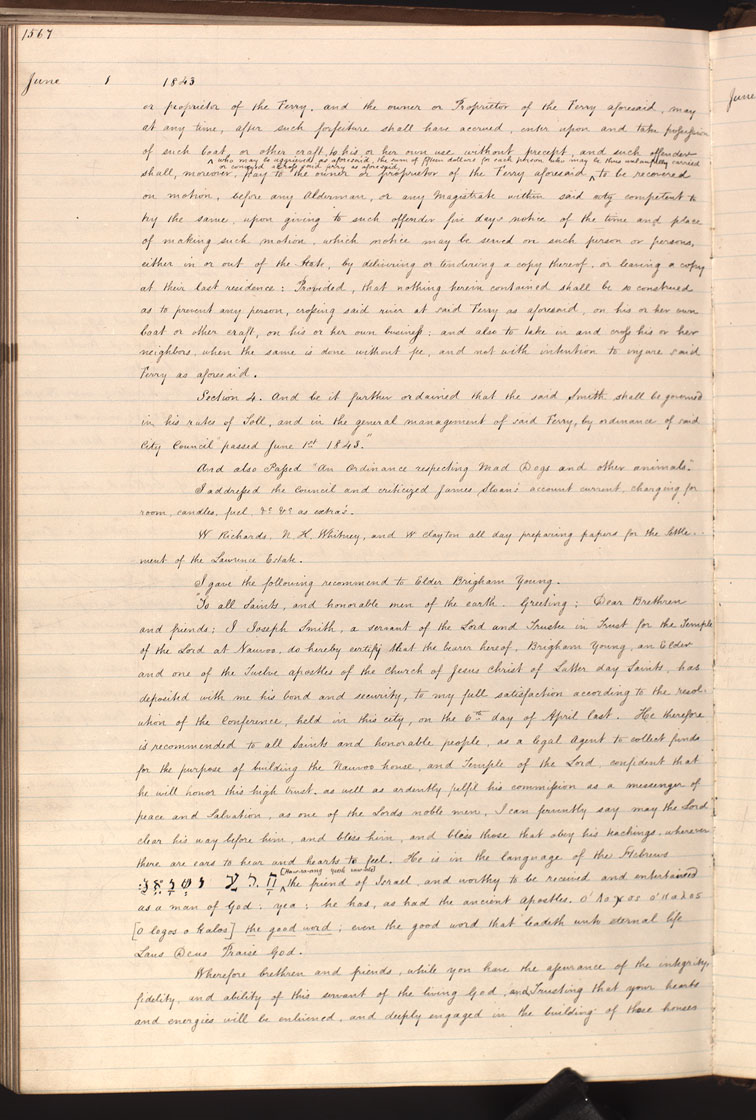 1567
June 1 1843
or proprietor of the Ferry, and the owner or Proprietor of the Ferry aforesaid, may
at any time, after such forfeiture shall have accrued, enter upon and take possession
of such boat, or other craft, to his or her own use without precept, and such offender
who may be aggrieved as aforesaid, the sum of fifteen dollars for each person who may be thus unlawfully carried
or conveyed across said ferry as aforesaid,
shall, moreover, pay to the owner or proprietor of the Ferry aforesaid ^ to be recovered
on motion, before any Alderman, or any Magistrate within said city competent to
try the same, upon giving to such offender five days notice of the time and place
of making such motion, which notice may be served on such person or persons,
either in or out of the State, by delivering or tendering a copy thereof, or leaving a copy
at their last residence: Provided, that nothing herein contained shall be so construed
as to prevent any person, crossing said river at said Ferry as aforesaid, on his or her own
boat or other craft, on his or her own business; and also to take in and cross his or her
neighbors, when the same is done without fee, and not with intention to injure said
Ferry as aforesaid.
Section 4. And be it further ordained that the said Smith shall be governed
in his rates of Toll, and in the general management of said Ferry, by ordinance of said
City Council" passed June 1st 1843."
And also Passed "An Ordinance respecting Mad Dogs and other animals."
I addressed the Council and criticized James Sloan's account current, charging for
room, candles, fuel, &c &c as extras.
W Richards, N. K. Whitney, and W Clayton all day preparing papers for the settle-
ment of the Lawrence Estate.
I gave the following recommend to Elder Brigham Young.
"To all Saints, and honorable men of the earth. Greeting; Dear Brethren
and friends; I Joseph Smith, a servant of the Lord and Trustee in Trust for the Temple
of the Lord at Nauvoo, do hereby certify that the bearer hereof, Brigham Young, an Elder
and one of the Twelve apostles of the church of Jesus christ of Latter day Saints, has
deposited with me his bond and security, to my full satisfaction according to the resol-
ution of the Conference, held in this city, on the 6th day of April last. He therefore
is recommended to all Saints and honorable people, as a legal Agent to collect funds
for the purpose of building the Nauvoo house, and Temple of the Lord, confident that
he will honor this high trust, as well as ardently fulfil his commission as a messenger of
peace and Salvation, as one of the Lords noble men, I can fervently say may the Lord
clear his way before him, and bless him, and bless those that obey his teachings, wherever
there are ears to hear and hearts to feel. He is in the language of the Hebrews
^ the friend of Israel, and worthy to be received and entertained
as a man of God; yea; he has, as had the ancient Apostles. O' λογος ο' καλος
[O logos o Kalos] the good word; even the good word that leadeth unto eternal life
Laus Deus Praise God.
Wherefore brethren and friends, while you have the assurance of the integrity,
fidelity, and ability of this servant of the living God, and Trusting that your hearts
and energies will be enlivened, and deeply engaged in the building of those houses
June